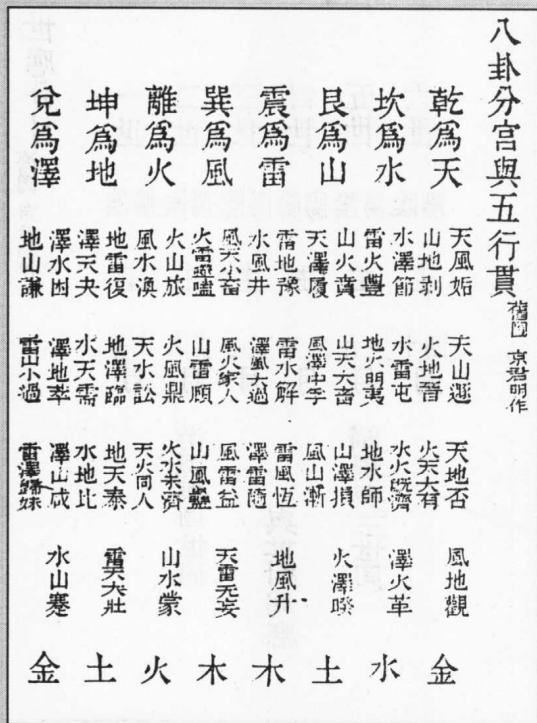 八卦分宮與五行貫 舊圖 京君明作
乾爲天 天風姤 天山遯 天地否 風地觀 金
山地剥 火地晉 火天大有
坎爲水 水澤節 水雷屯 水火既濟 澤火革 水
雷火豐 地火明夷 地水師
艮爲山 山火賁 山天大畜 山澤損 火澤睽 土
天澤履 風澤中孚 風山漸
震爲雷 雷地豫 雷水解 雷風恆 地風升 木
水風井 澤風大過 澤雷隨
巽爲風 風天小畜 風火家人 風雷益 天雷无妄 木
火雷噬嗑 山雷頤 山風蠱
離爲火 火山旅 火風鼎 火水未濟 山水蒙 火
風水渙 天水訟 天火同人
坤爲地 地雷復 地澤臨 地天泰 雷天大壯 土
澤天夬 水天需 水地比
兌爲澤 澤水困 澤地萃 澤山咸 水山蹇 金
地山謙 雷山小過 雷澤歸妹